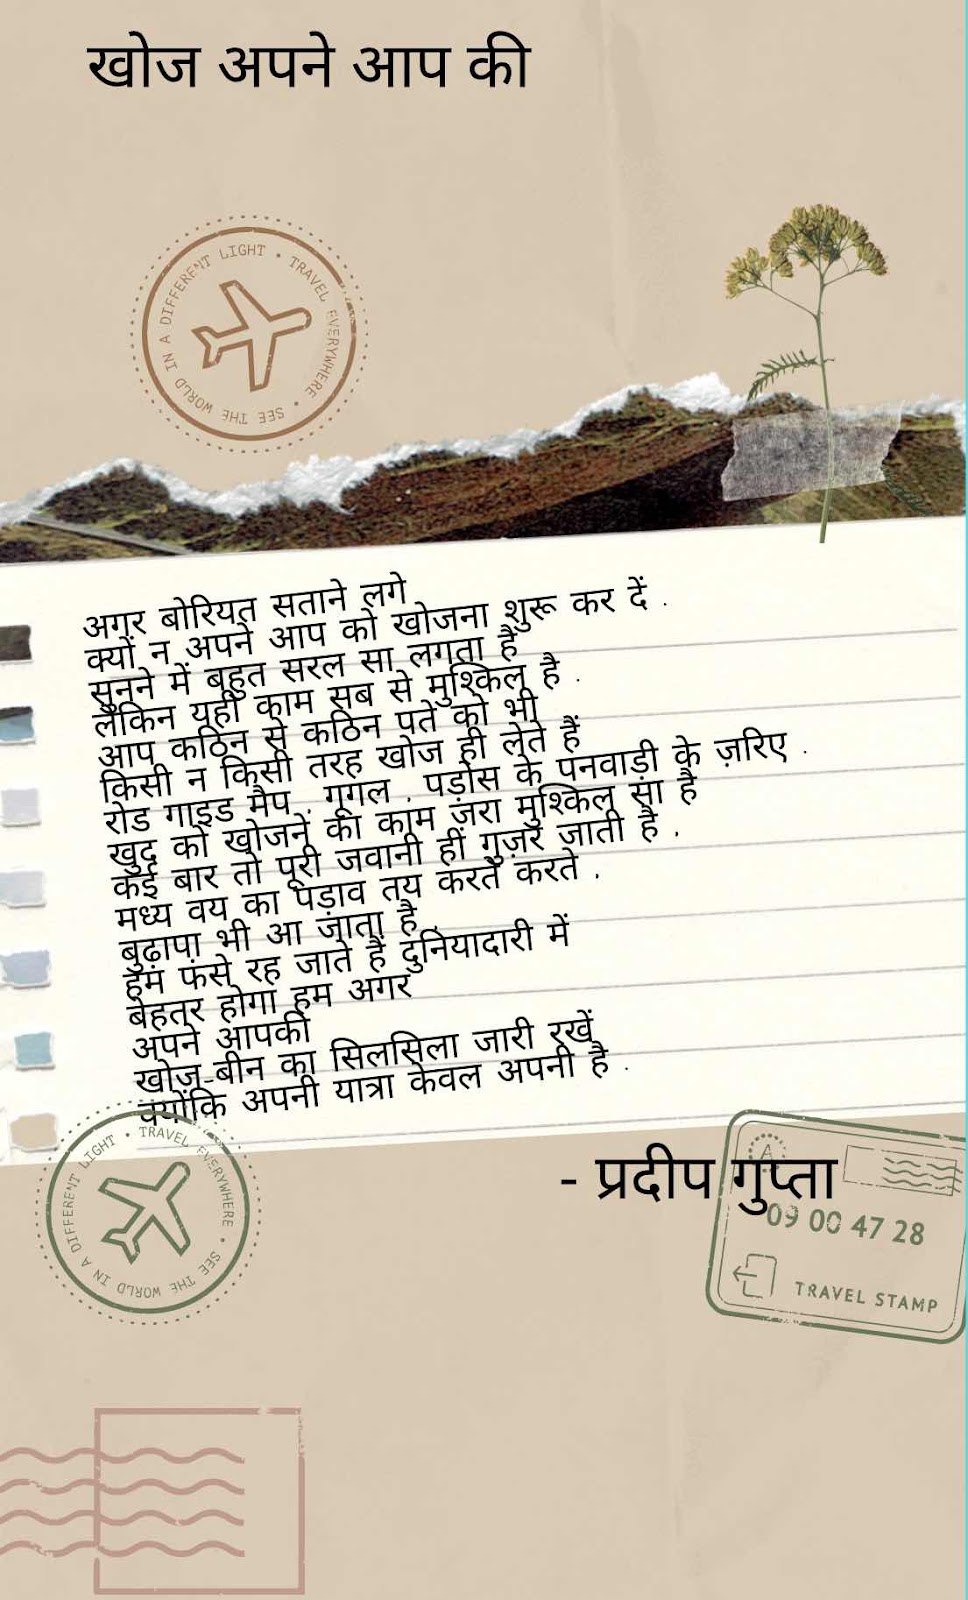 खोज अपने आप की
SEE THE WORLD IN A DIFFERENT LIGHT • TRAVEL EVERYWHERE •
अगर बोरियत सताने लगे
क्यों न अपने आप को खोजना शुरू कर दें .
सुनने में बहुत सरल सा लगता है
लेकिन यही काम सब से मुश्किल है .
आप कठिन से कठिन पते को भी
किसी न किसी तरह खोज ही लेते हैं
रोड गाइड मैप , गूगल , पड़ोस के पनवाड़ी के ज़रिए .
खुद को खोजने का काम ज़रा मुश्किल सा है
कई बार तो पूरी जवानी ही गुज़र जाती है .
मध्य वय का पड़ाव तय करते करते .
बुढ़ापा भी आ जाता है .
हम फंसे रह जाते हैं दुनियादारी में
बेहतर होगा हम अगर
अपने आपकी
खोज-बीन का सिलसिला जारी रखें
क्योंकि अपनी यात्रा केवल अपनी है .
- प्रदीप गुप्ता
SEE THE WORLD IN A DIFFERENT LIGHT • TRAVEL EVERYWHERE •
A
09 00 47 28
TRAVEL STAMP